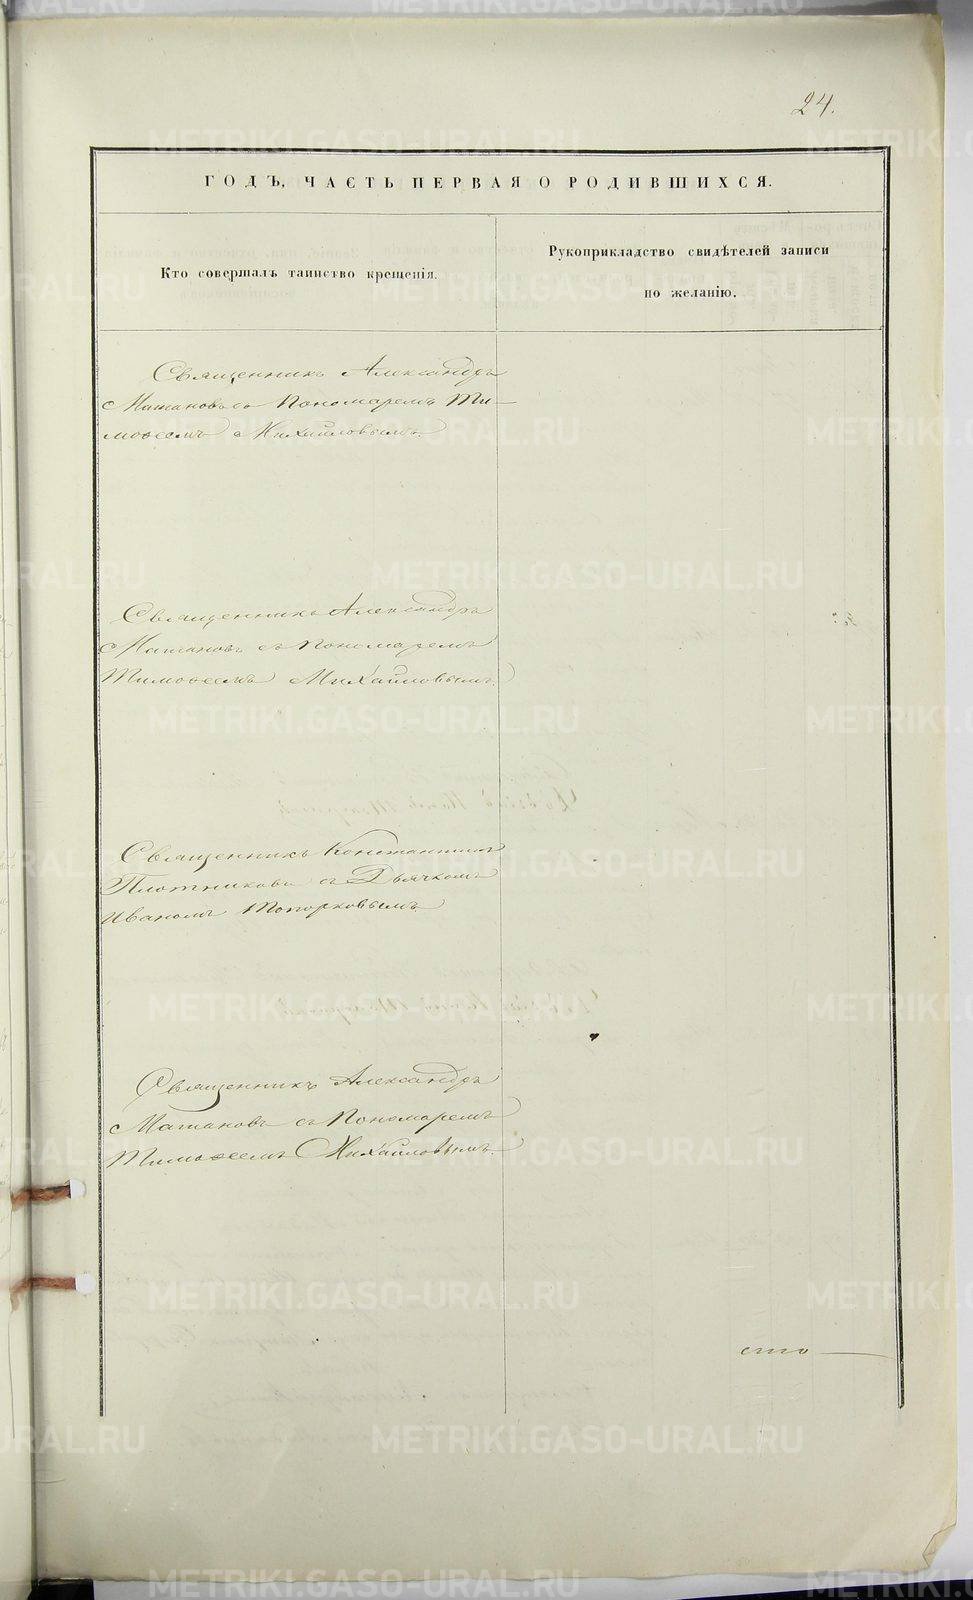 24.
ГОДЪ, ЧАСТЬ ПЕРВАЯ О РОДИВШИХСЯ.
Кто совершалъ таинство крещенія.
Рукоприкладство свидѣтелей записи
по желанію.
Священникъ Александръ
Матановъ съ Пономаремъ Ти-
моѳеемъ Михайловымъ.
Священникъ Александръ
Матановъ съ Пономаремъ
Тимоѳеемъ Михайловымъ.
Священникъ Константинъ
Плотниковъ съ Дьячкомъ
Иваномъ Топорковымъ.
Священникъ Александръ
Матановъ съ Пономаремъ
Тимоѳеемъ Михайловымъ.
сто
METRIKI.GASO-URAL.RU